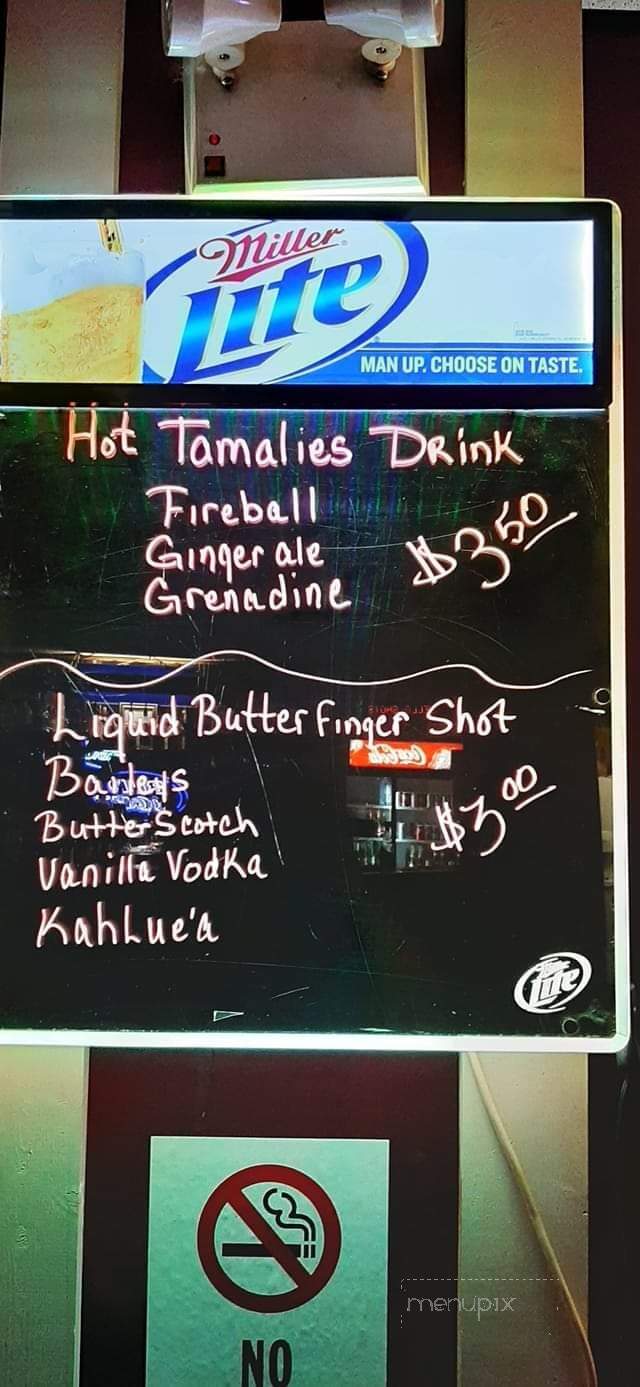 Miller
Lite
MAN UP. CHOOSE ON TASTE.
Hot Tamalies Drink
Fireball
Ginger ale
Grenadine
$3.50
Liquid Butterfinger Shot
Baileys
ButterScotch
Vanilla Vodka
KahLue'a
$3.00
Coca-Cola
Lite
NO
menupix